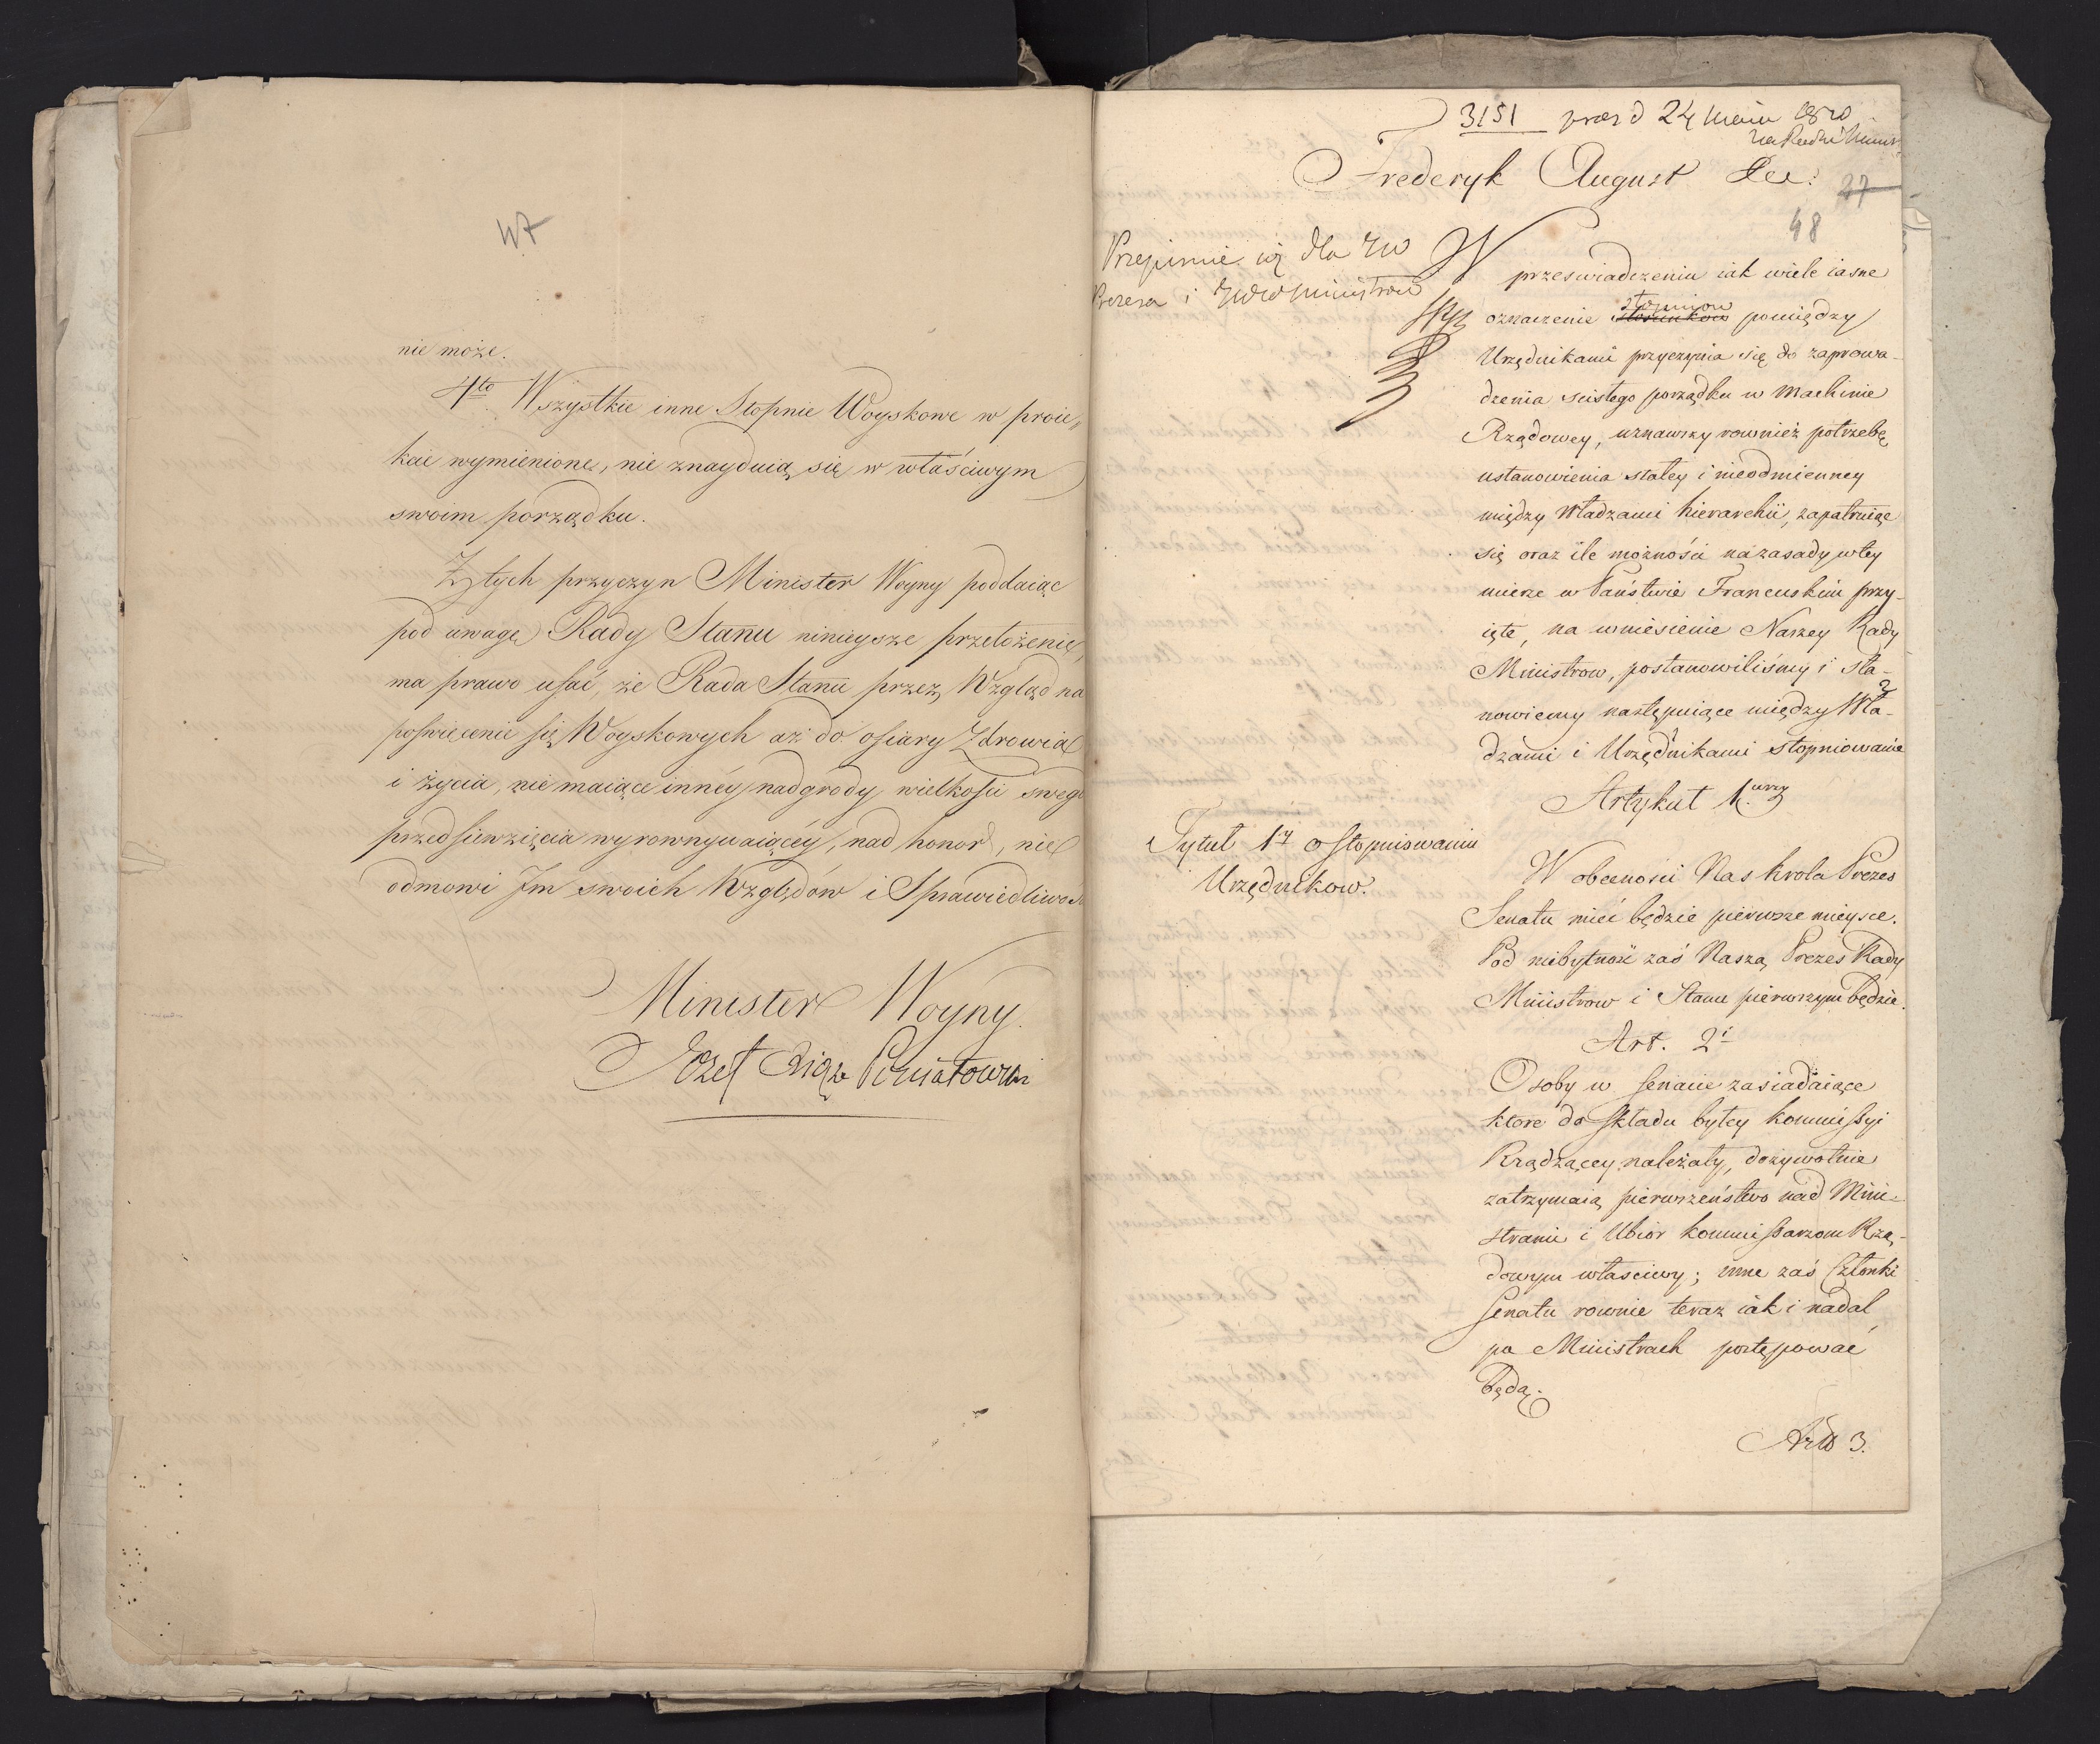 47
nie może.
4to Wszystkie inne Stopnie Woyskowe w proie„
kcie wymienione, nie znayduią się w właściwym
swoim porządku.
Z tych przyczyn Minister Woyny poddaiąc
pod uwagę Rady Stanu ninieysze przełożenie,
ma prawo ufać, że Rada Stanu przez Wzgląd na
poświęcenie się Woyskowych aż do ofiary Zdrowia
i życia, nie maiące innéy nadgrody wielkości swego
przedsiewzięcia wyrownywaiącéy, nad honor, nie
odmowi Im swoich Względów i Sprawiedliwoś
Minister Woyny
Józef Xiąże Poniatowski
3151 praes d 24 Maia 1810
na Radzie Minis
Frederyk August &c:
27
48
Przepisanie iéy dla JW
Prezesa i JWW Ministrow
W przeswiadczeniu iak wiele iasne
stopniow
oznaczenie stosunkow pomiędzy
Urzędnikami przyczynia się do zaprowa-
dzenia scisłego porządku w Machinie
Rządowey, uznawszy rownież potrzebę
ustanowienia stałey i nieodmienney
między Władzami hierarchii, zapatruiąc
się oraz ile możności na zasady w tey
mierze w Państwie Francuskim przy-
ięte, na wniesienie Naszey Rady
Ministrow, postanowiliśmy i sta-
nowiemy następuiące między Wła-
dzami i Urzędnikami stopniowanie
Artykuł 1.wszy
Tytuł 1y o stopniowaniu
Urzędnikow.
W obecności Nas Krola Prezes
Senatu mieć będzie pierwsze mieysce.
Pod niebytność zaś Naszą Prezes Rady
Ministrow i Stanu pierwszym będzie.
Art. 2i
Osoby w Senacie zasiadaiące
ktore do składu byłey Kommissyi
Rządzącey należały, dożywotnie
zatrzymaią pierwszeństwo nad Mini-
strami i Ubior Kommissarzom Rzą-
dowym własciwy; inne zaś Członki
Senatu rownie teraz iak i nadal
po Ministrach postępować
będą.
Art 3.